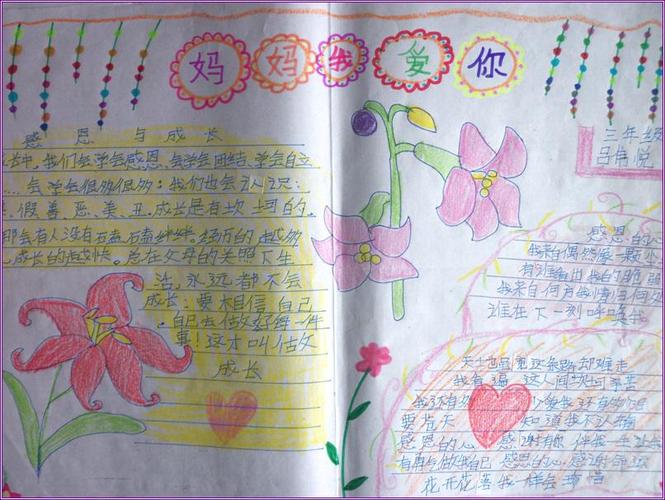 妈妈我爱你
感恩与成长
中,我们会学会感恩,会学会团结,学会自立
会学会很多很多;我们也会认识:
假、善、恶、美、丑。成长是有坎坷的。
那会有人没有磕磕绊绊。经历的越多
成长的越快。总在父母的关照下生
活,永远都不会
成长;要相信自己,
自己去做好每一件
事!这才叫做
成长
三年级
吕伟悦
感恩的心
我来自偶然像一颗
有谁看出我的脆弱
我来自何方我情归何处
谁在下一刻呼唤我
天地虽宽这条路却难走
我看遍这人间坎坷辛苦
我还有多少爱我还有多少泪
要苍天知道我不认输
感恩的心感谢有你伴我一生
有勇气做我自己感恩的心感谢命运
花开花落我一样会珍惜